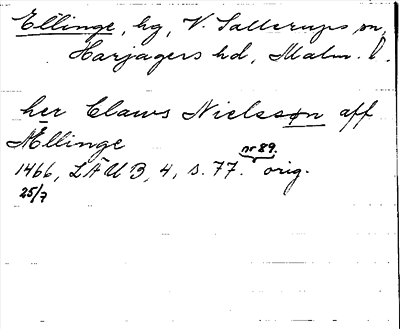 Ellinge, hg, V. Sallerups sn,
Harjagers hd, Malm. l.
her Claws Nielssøn aff
Ællinge
nr 89.
1466, LÄUB, 4, s. 77. orig.
25/7